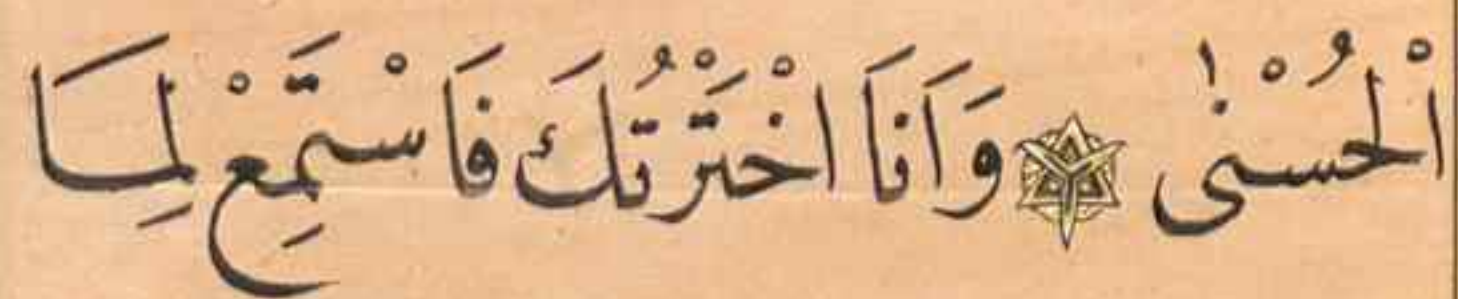 اَلْحُسْنٰى ۝ وَاَنَا اخْتَرْتُكَ فَاسْتَمِعْ لِمَا